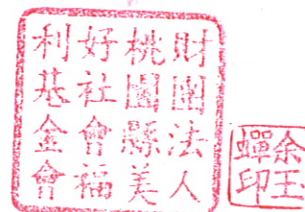 財團法人
桃園縣美
好社會福
利基金會
余玉
嬋印